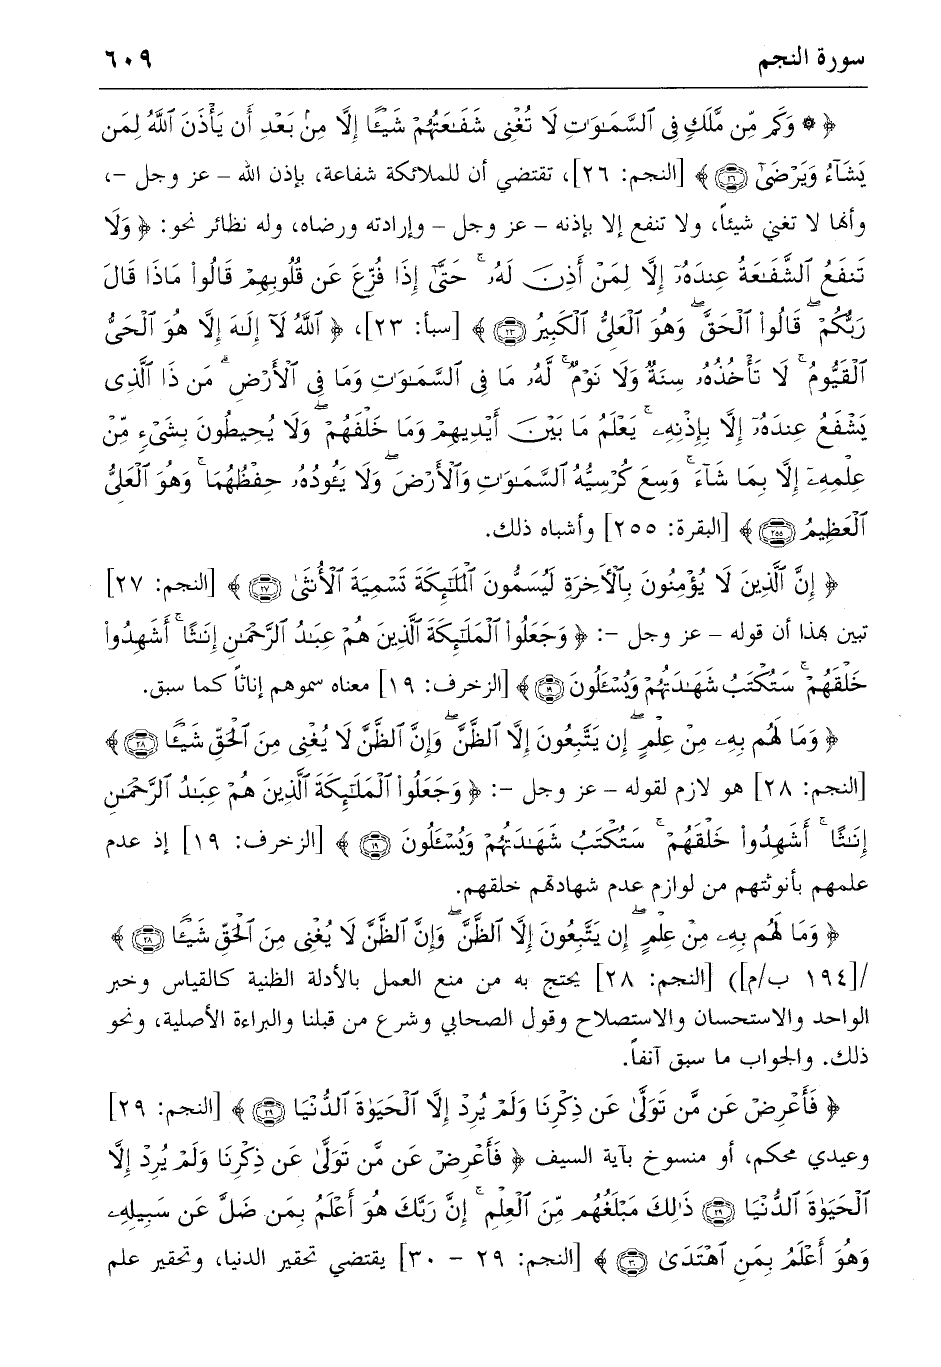 سورة النجم ٦٠٩
﴿ ۞ وَكَم مِّن مَّلَكٍ فِى ٱلسَّمَـٰوَٰتِ لَا تُغْنِى شَفَـٰعَتُهُمْ شَيْـًٔا إِلَّا مِنۢ بَعْدِ أَن يَأْذَنَ ٱللَّهُ لِمَن
يَشَآءُ وَيَرْضَىٰٓ ﴿٢٦﴾ ﴾ [النجم: ٢٦]، تقتضي أن للملائكة شفاعة، بإذن الله – عز وجل –،
وأنها لا تغني شيئاً، ولا تنفع إلا بإذنه – عز وجل – وإرادته ورضاه، وله نظائر نحو: ﴿ وَلَا
تَنفَعُ ٱلشَّفَـٰعَةُ عِندَهُۥٓ إِلَّا لِمَنْ أَذِنَ لَهُۥ ۚ حَتَّىٰٓ إِذَا فُزِّعَ عَن قُلُوبِهِمْ قَالُوا۟ مَاذَا قَالَ
رَبُّكُمْ ۖ قَالُوا۟ ٱلْحَقَّ ۖ وَهُوَ ٱلْعَلِىُّ ٱلْكَبِيرُ ﴿٢٣﴾ ﴾ [سبأ: ٢٣]، ﴿ ٱللَّهُ لَآ إِلَـٰهَ إِلَّا هُوَ ٱلْحَىُّ
ٱلْقَيُّومُ ۚ لَا تَأْخُذُهُۥ سِنَةٌ وَلَا نَوْمٌ ۚ لَّهُۥ مَا فِى ٱلسَّمَـٰوَٰتِ وَمَا فِى ٱلْأَرْضِ ۗ مَن ذَا ٱلَّذِى
يَشْفَعُ عِندَهُۥٓ إِلَّا بِإِذْنِهِۦ ۚ يَعْلَمُ مَا بَيْنَ أَيْدِيهِمْ وَمَا خَلْفَهُمْ ۖ وَلَا يُحِيطُونَ بِشَىْءٍ مِّنْ
عِلْمِهِۦٓ إِلَّا بِمَا شَآءَ ۚ وَسِعَ كُرْسِيُّهُ ٱلسَّمَـٰوَٰتِ وَٱلْأَرْضَ ۖ وَلَا يَـُٔودُهُۥ حِفْظُهُمَا ۚ وَهُوَ ٱلْعَلِىُّ
ٱلْعَظِيمُ ﴿٢٥٥﴾ ﴾ [البقرة: ٢٥٥] وأشباه ذلك.
﴿ إِنَّ ٱلَّذِينَ لَا يُؤْمِنُونَ بِٱلْـَٔاخِرَةِ لَيُسَمُّونَ ٱلْمَلَـٰٓئِكَةَ تَسْمِيَةَ ٱلْأُنثَىٰ ﴿٢٧﴾ ﴾ [النجم: ٢٧]
تبين بهذا أن قوله – عز وجل –: ﴿ وَجَعَلُوا۟ ٱلْمَلَـٰٓئِكَةَ ٱلَّذِينَ هُمْ عِبَـٰدُ ٱلرَّحْمَـٰنِ إِنَـٰثًا ۚ أَشَهِدُوا۟
خَلْقَهُمْ ۚ سَتُكْتَبُ شَهَـٰدَتُهُمْ وَيُسْـَٔلُونَ ﴿١٩﴾ ﴾ [الزخرف: ١٩] معناه سموهم إناثاً كما سبق.
﴿ وَمَا لَهُم بِهِۦ مِنْ عِلْمٍ ۖ إِن يَتَّبِعُونَ إِلَّا ٱلظَّنَّ ۖ وَإِنَّ ٱلظَّنَّ لَا يُغْنِى مِنَ ٱلْحَقِّ شَيْـًٔا ﴿٢٨﴾ ﴾
[النجم: ٢٨] هو لازم لقوله – عز وجل –: ﴿ وَجَعَلُوا۟ ٱلْمَلَـٰٓئِكَةَ ٱلَّذِينَ هُمْ عِبَـٰدُ ٱلرَّحْمَـٰنِ
إِنَـٰثًا ۚ أَشَهِدُوا۟ خَلْقَهُمْ ۚ سَتُكْتَبُ شَهَـٰدَتُهُمْ وَيُسْـَٔلُونَ ﴿١٩﴾ ﴾ [الزخرف: ١٩] إذ عدم
علمهم بأنوثتهم من لوازم عدم شهادتهم خلقهم.
﴿ وَمَا لَهُم بِهِۦ مِنْ عِلْمٍ ۖ إِن يَتَّبِعُونَ إِلَّا ٱلظَّنَّ ۖ وَإِنَّ ٱلظَّنَّ لَا يُغْنِى مِنَ ٱلْحَقِّ شَيْـًٔا ﴿٢٨﴾ ﴾
/[١٩٤ ب/م]) [النجم: ٢٨] يحتج به من منع العمل بالأدلة الظنية كالقياس وخبر
الواحد والاستحسان والاستصلاح وقول الصحابي وشرع من قبلنا والبراءة الأصلية، ونحو
ذلك. والجواب ما سبق آنفاً.
﴿ فَأَعْرِضْ عَن مَّن تَوَلَّىٰ عَن ذِكْرِنَا وَلَمْ يُرِدْ إِلَّا ٱلْحَيَوٰةَ ٱلدُّنْيَا ﴿٢٩﴾ ﴾ [النجم: ٢٩]
وعيدي محكم، أو منسوخ بآية السيف ﴿ فَأَعْرِضْ عَن مَّن تَوَلَّىٰ عَن ذِكْرِنَا وَلَمْ يُرِدْ إِلَّا
ٱلْحَيَوٰةَ ٱلدُّنْيَا ﴿٢٩﴾ ذَٰلِكَ مَبْلَغُهُم مِّنَ ٱلْعِلْمِ ۚ إِنَّ رَبَّكَ هُوَ أَعْلَمُ بِمَن ضَلَّ عَن سَبِيلِهِۦ
وَهُوَ أَعْلَمُ بِمَنِ ٱهْتَدَىٰ ﴿٣٠﴾ ﴾ [النجم: ٢٩ – ٣٠] يقتضي تحقير الدنيا، وتحقير علم